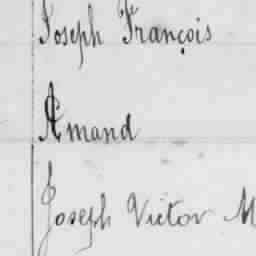 Joseph François
Amand
Joseph Victor M